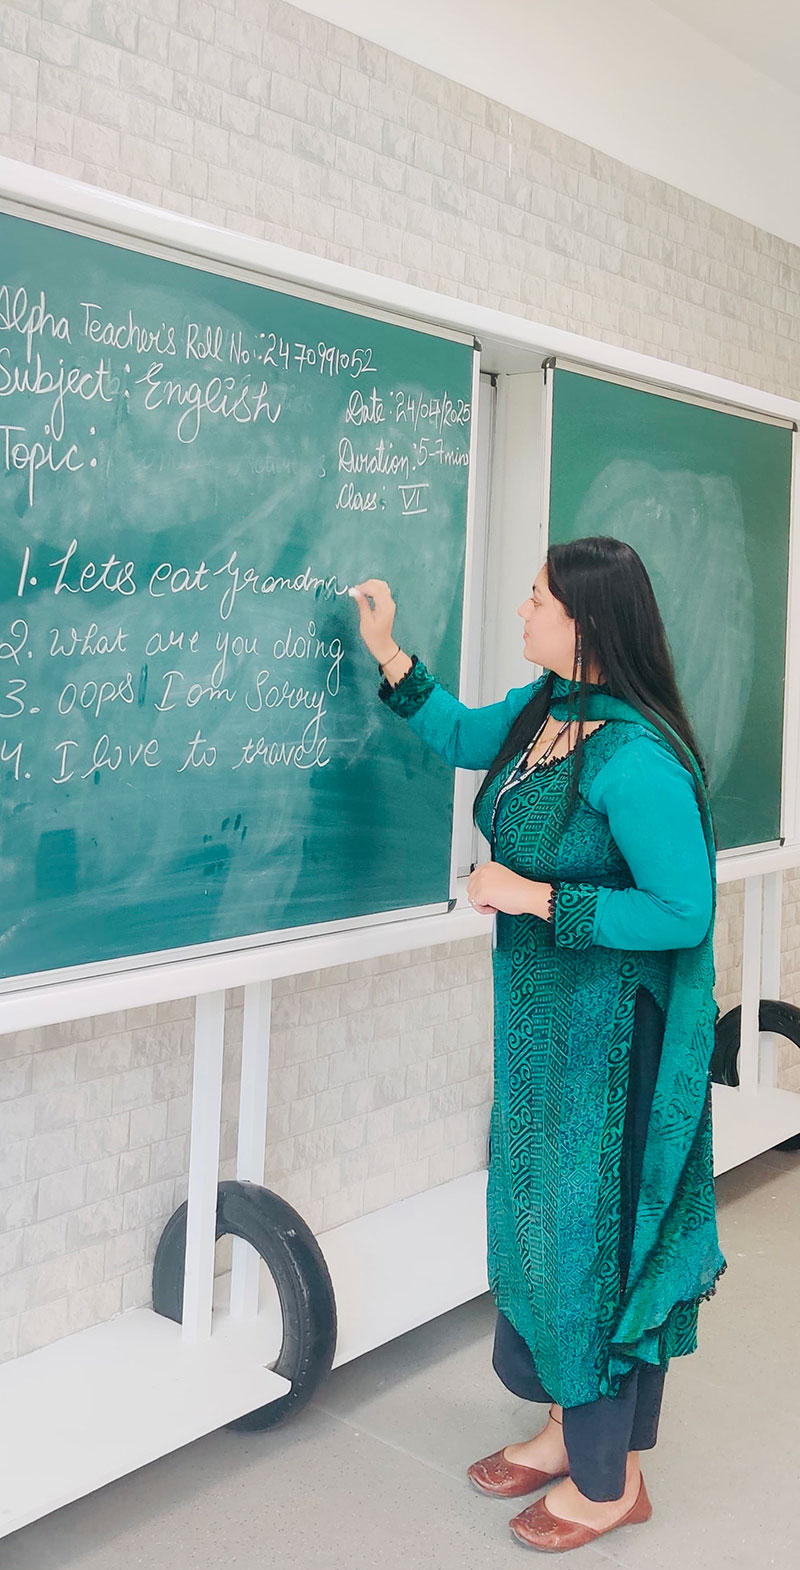 Alpha Teacher's Roll No:: 2470991052
Subject: English
Date: 24/04/2025
Topic:
Duration: 5-7mins
Class: VI
1. Lets eat Grandma
2. What are you doing
3. Oops I am Sorry
4. I love to travel